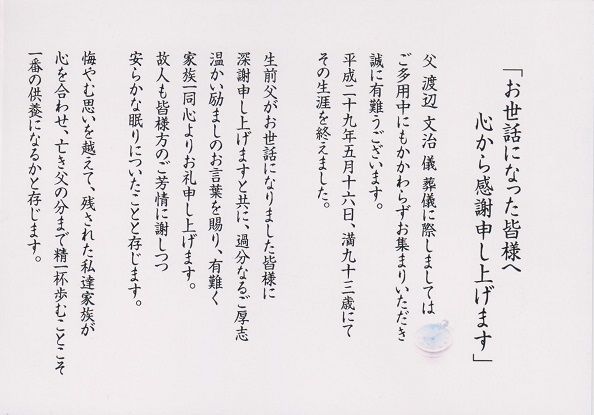 「お世話になった皆様へ
心から感謝申し上げます」
父 渡辺 文治 儀 葬儀に際しましては
ご多用中にもかかわらずお集まりいただき
誠に有難うございます。
平成二十九年五月十六日、満九十三歳にて
その生涯を終えました。
生前父がお世話になりました皆様に
深謝申し上げますと共に、過分なるご厚志
温かい励ましのお言葉を賜り、有難く
家族一同心よりお礼申し上げます。
故人も皆様方のご芳情に謝しつつ
安らかな眠りについたことと存じます。
悔やむ思いを越えて、残された私達家族が
心を合わせ、亡き父の分まで精一杯歩むことこそ
一番の供養になるかと存じます。